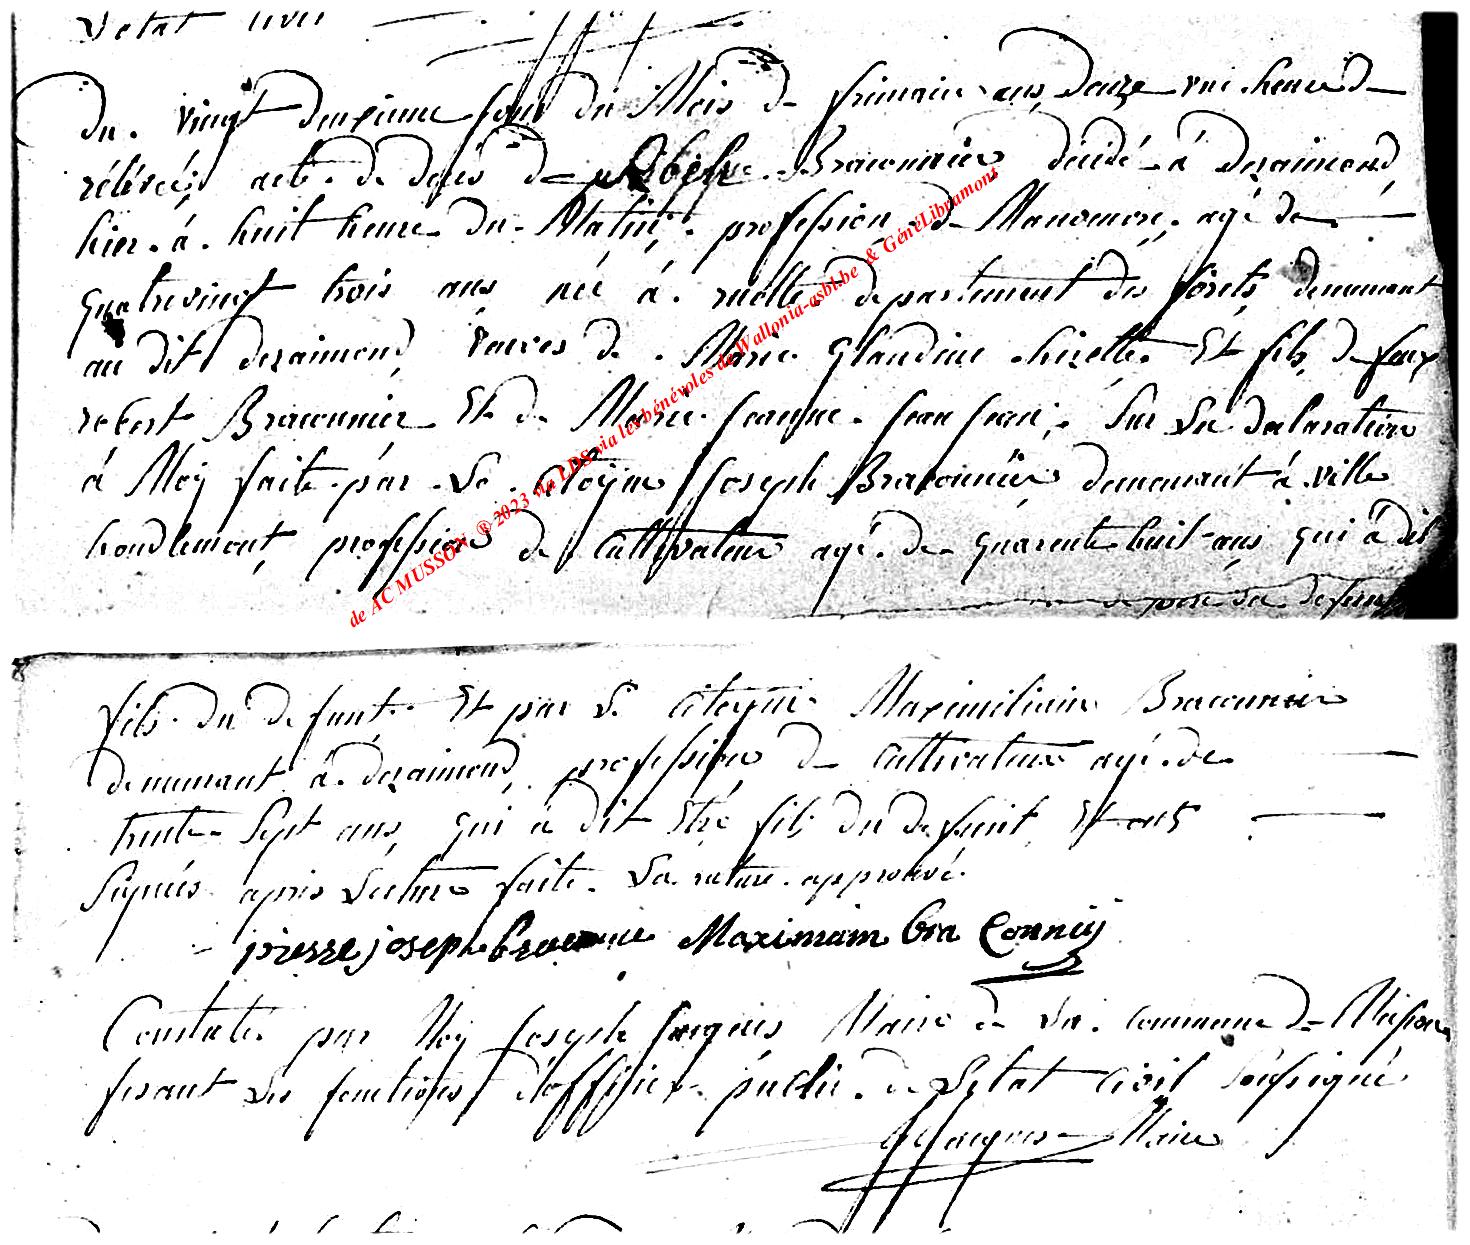 L'etat civil
du vingt deuxieme jour du Mois de frimaire ans douze une heure de
rélévée, acte de décés de Braconnier décédé à deraimond
hier à huit heure du Matin, profession de Manoeuvre, agé de
quatrevingt trois ans née à ruette departement des forêts demeurant
au dit deraimond, veuves de Marie Glaudine hizette Et fils de feux
robert Braconnier Et de Marie Jeanne Jean Jean, Sur La declaration
à Moy faite par Le Citoÿen Joseph Braconnier demeurant à ville
houdlemont, profession de Cultivateur agé de quarente huit ans qui à dit
fils du defunt Et par Le Citoyen Maximiliain Braconnier
demeurant à deraimond, profession de Cultivateur agé de
trente Sept ans, qui à dit Etre fils du defunt Et ont
Signés aprés Lecture faite. La rature approuvé.
pierre joseph Maximiain bra Conniÿ
Constaté par Moy Joseph Jacques Maire de La commune de Musson
fesant Les fonctions d'officier public de L'etat Civil Soussigné
JJacques Maire
de AC MUSSON ® 2023 via LDS via les bénévoles de Wallonia-asbl.be & GénéLibramont